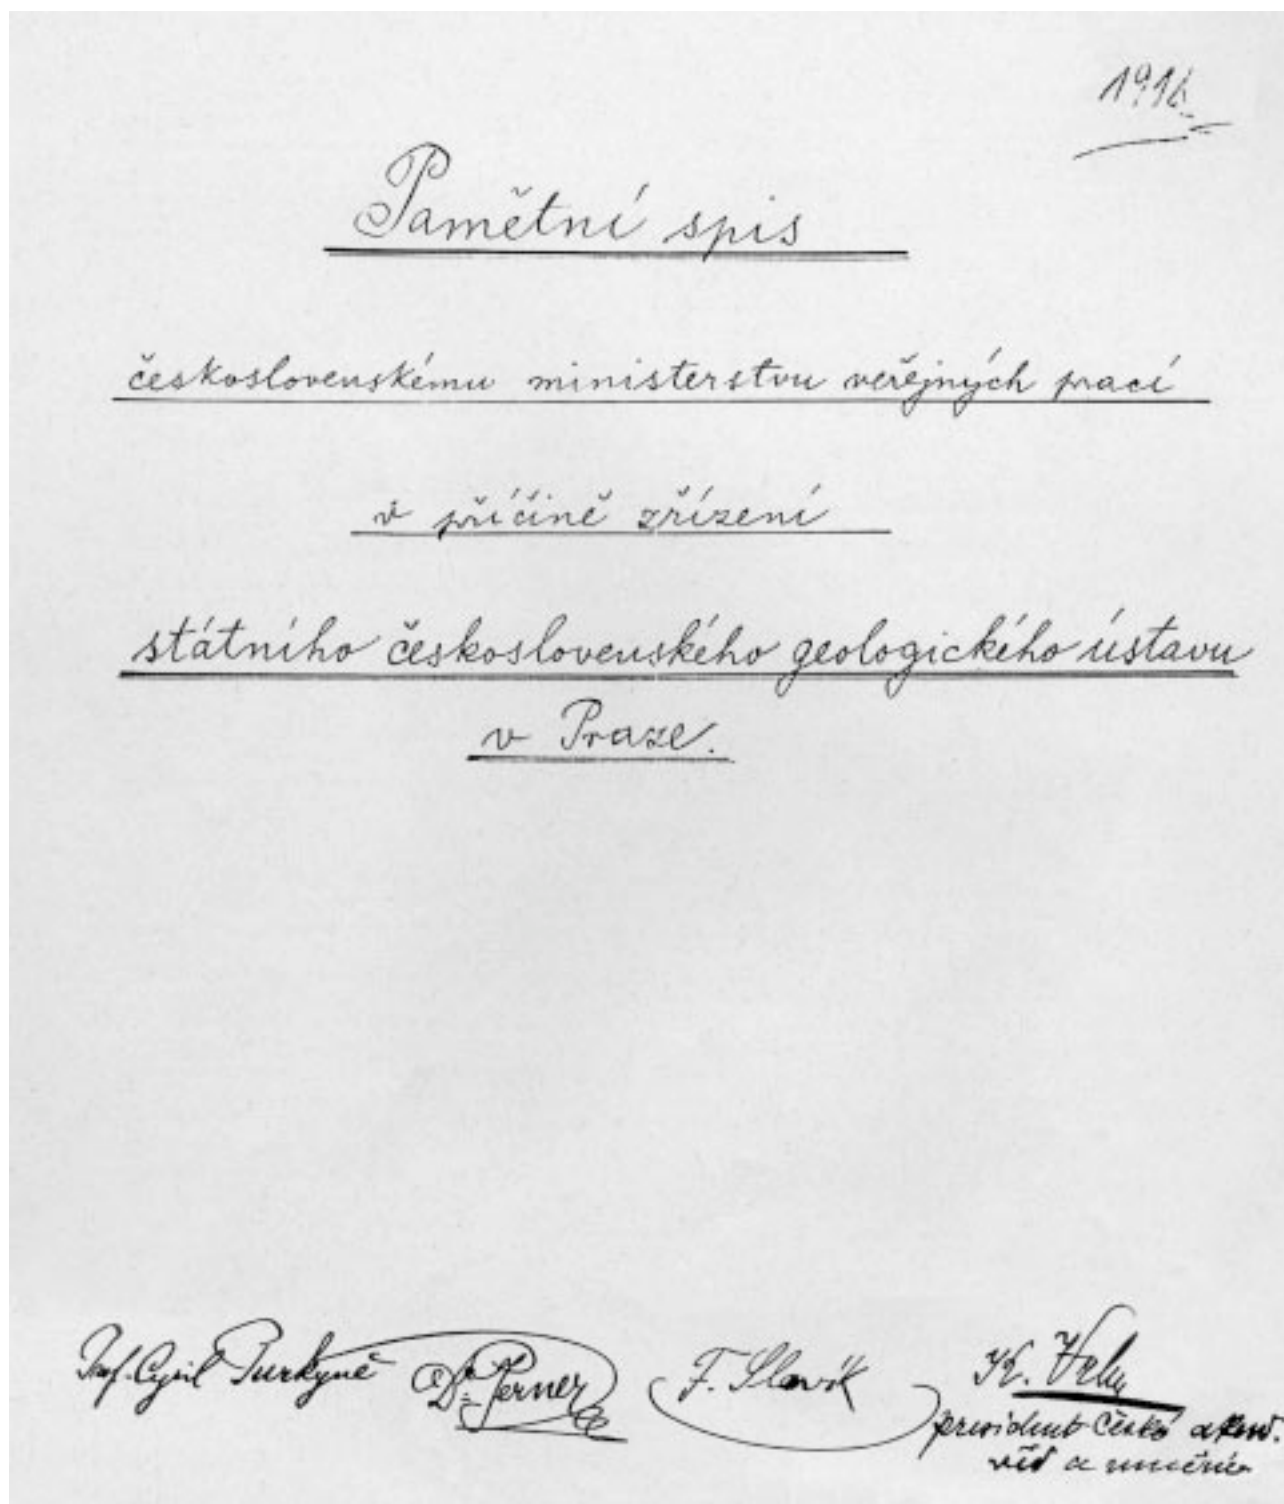 1918
Pamětní spis
československému ministerstvu veřejných prací
v příčině zřízení
státního československého geologického ústavu
v Praze.
Prof. Cyril Purkyně Dr. Perner F. Slavík K. Vrba
president České akad.
věd a umění